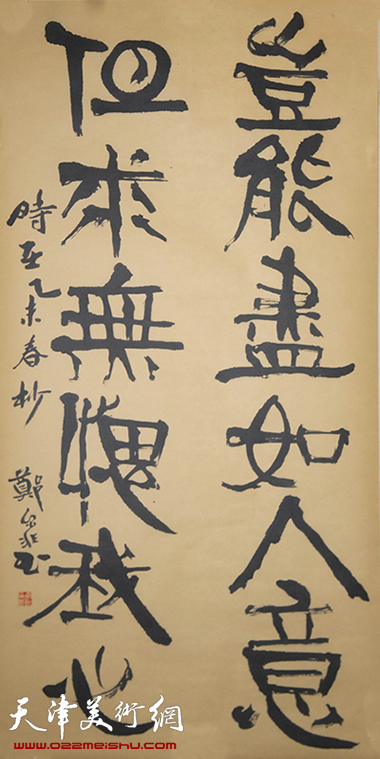 豈能盡如人意
但求無愧我心
時在乙未春杪
鄭
天津美術網
www.022meishu.com